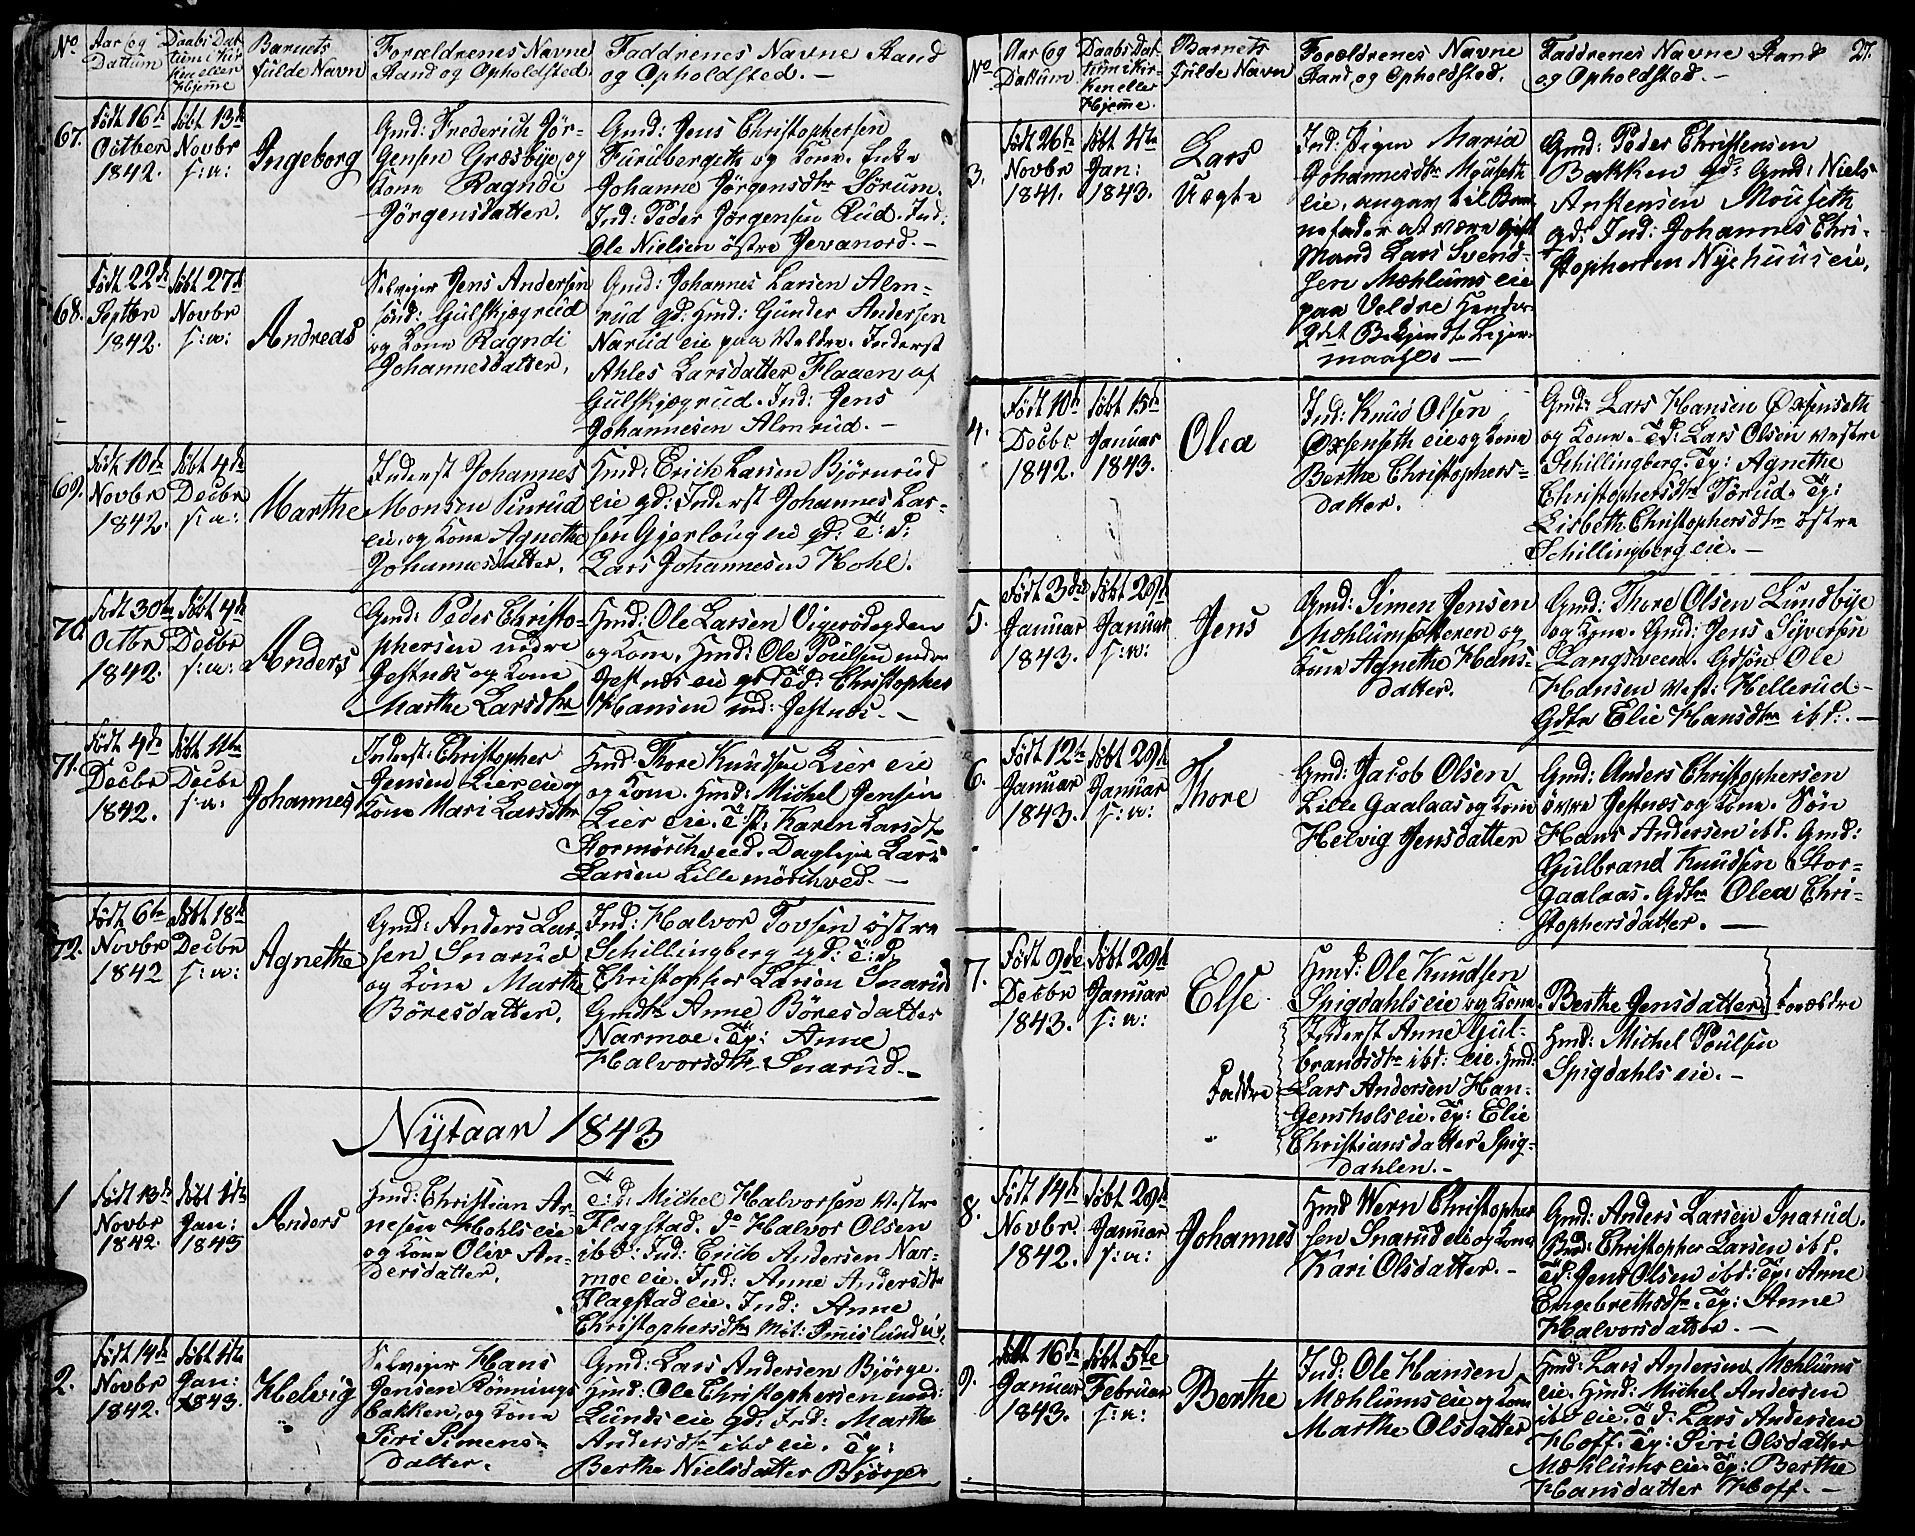 No
Aar og
Dattum
Daabs Dat-
tum i Kir-
ken eller
Hjeme
Barnets
fulde Navn
Forældrenes Navne
Stand og Opholdsted.
Faddrenes Navne Stand
og Opholdsted. —
67.
Født 16de
Octber
1842.
døbt 13de
Novbr
s: a:
Ingeborg
Gmd: Frederich Jør-
gensen Græsbye, og
Kone Ragndi
Jørgensdatter.
Gmd: Jens Christophersen
Furubergeth og Kone. Enke
Johanne Jørgensdtr Sørum.
Ind: Peder Jørgensen Rud. Ind:
Ole Nielsen østre Jevanord. —
68.
Født 22de
Septbr
1842.
døbt 27de
Novbr
s: a:
Andreas
Selveier Jens Andersen
sønd: Gulskjøgrud
og Kone Ragndi
Johannesdatter.
Gmd: Johannes Larsen Alm-
rud gd: Hmd: Gunder Andersen
Narud eie paa Veldre. Inderst
Ahles Larsdatter Flagen af
Gulskjøgrud. Ind: Jens
Johannesen Almrud. —
69.
Født 10de
Novbr
1842.
døbt 4de
Decbr
s: a:
Marthe
Inderst Johannes
Monsen Pinrud
eie, og Kone Agnethe
Johannesdatter.
Hmd: Erich Larsen Bjørnrud
eie gd: Inderst Johannes Lar-
sen Gjerloug eie gd: T: d:
Lars Johannesen Hohl.
70.
Født 30te
Octbr
1842.
døbt 4de
Decbr
s: a:
Anders
Gmd: Peder Christo-
phersen nedre
Jestnæs og Kone
Marthe Larsdtr
Hmd: Ole Larsen Vigerødegden
og Kone. Hmd: Ole Poulsen nedre
Jestnæs eie gd: Td: Christopher
Hansen ind: Jestnæs. —
71.
Født 9de
Decbr
1842.
døbt 11te
Decbr
s: a:
Johannes
Inderst: Christopher
Jensen Lier eie og
Kone Mari Larsdtr
Hmd: Thore Knudsen Lier eie
og Kone. Hmd: Michel Jensen
Lier eie. T: P: Karen Larsdtr
Stormørchveed. Dagleje Lars
Larsen Lille mørchved. —
72.
Født 6te
Novbr
1842
døbt 18de
Decbr
s: a:
Agnethe
Gmd: Anders Lar-
sen Snarud
og Kone Marthe
Børesdatter.
Ind: Halvor Tovsen østre
Schillingberg gd: T: d:
Christopher Larsen Snarud
Gmdtr Anne Børesdatter
Narmoe. Tp: Anne
Halvorsdtr Snarud. —
Nytaar 1843
1
Født 13de
Novbr
1842.
døbt 1ste
Jan:
1843
Anders
Hmd: Christian Ar-
nesen Hohls eie
og Kone Oliv An-
dersdatter.
T: d: Michel Halvorsen vestre
Flagstad. Do Halvor Olsen
ibd: Ind: Erich Andersen Nar-
moe eie. Ind: Anne Andersdtr
Flagstad eie. Ind: Anne
Christophersdtr Møt: Smislund eie.
2.
Født 14de
Novbr
1842.
døbt 1ste
Jan:
1843.
Helvig
Selveier Hans
Jensen Rønnings
bakken, og Kone
Siri Simens-
datter.
Gmd: Lars Andersen Bjørge.
Hmd: Ole Christophersen nord:
Lunds eie gd: Ind: Marthe
Andersdtr ibd eie. Tp:
Berthe Nielsdatter Bjørge
27.
No
Aar og
Dattum
Daabs Dat-
tum i Kir-
ken eller
Hjeme.
Barnets
fulde Navn
Forældrenes Navne
Stand og Opholdsted.
Faddrenes Navne Stand
og Opholdsted. —
3.
Født 26de
Novbr
1841.
døbt 1ste
Jan:
1843.
Lars
Uægte
Ind: Pigen Maria
Johannesdtr Mouseth
eie, angav til Bar-
nefader at være gift
Mand Lars Svend-
sen Mæhlums eie
paa Veldre
maahl. —
Gmd: Peder Christensen
Bakken gd: Gmd: Niels
Anstensen Mouseth
gd: Ind: Johannes Chri-
stophersen Nyehuus eie.
4.
Født 10de
Decbr
1842.
døbt 15de
Januar
1843.
Olea
Ind: Knud Olsen
Øxenseth eie og Kone
Berthe Christophers-
datter.
Gmd: Lars Hansen Øxenseth
og Kone. Td: Lars Olsen vestre
Schillingberg. Tp: Agnethe
Christophersdtr Sørud. Tp:
Lisbeth Christophersdtr østre
Schillingberg eie. —
5.
Født 3die
Januar
1843.
døbt 29de
Januar
s: a:
Jens
Gmd: Simen Jensen
Mæhlumskenen og
Kone Agnethe Hans-
datter.
Gmd: Thore Olsen Lundbye
og Kone. Gmd: Jens Syversen
Langsveen. Gdsøn Ole
Hansen vest: Hellerud —
Gdtr Elie Hansdtr ibd: —
6.
Født 12te
Januar
1843.
døbt 29de
Januar
s: a:
Thore
Gmd: Jacob Olsen
Lille Gaalaas og Kone
Helvig Jensdatter
Gmd: Anders Christophersen
øvre Jestnæs og Kone. Søn
Hans Andersen ibd. Gmd:
Gulbrand Knudsen Stor-
gaalaas. Gdtr Olea Chri-
stophersdatter. —
7.
Født 9de
Decbr
1843.
døbt 29de
Januar
s: a:
Else
Hmd: Ole Knudsen
Spigdahls eie og Kone
Berthe Jensdatter
Forældre
Faddre
Inderst Anne Gul-
brandsdtr ibd: eie. Hmd:
Lars Andersen Han-
genshols eie. Tp: Elie
Christiansdatter Spig-
dahlen. —
Hmd: Michel Poulsen
Spigdahls eie. —
8.
Født 14de
Novbr
1842.
døbt 29de
Januar
s: a:
Johannes
Hmd Wern Christopher
sen Snarud eie og Kone
Kari Olsdatter. —
Gmd: Anders Larsen Snarud.
Ind: Christopher Larsen ibd.
Td: Jens Olsen ibd: Tp: Anne
Engebrethsdtr. Tp: Anne
Halvorsdatter. —
9.
Født 16de
Januar
1843.
døbt 5te
Februar
s: a:
Berthe
Ind: Ole Hansen
Mæhlums eie og Kone
Marthe Olsdatter
Hmd: Lars Andersen Mæhlums
eie. Hmd: Michel Andersen
ibd eie. Td: Lars Andersen
Hoff. Tp: Siri Olsdatter
Mæhlums eie. Tp: Berthe
Hansdatter Hoff. —